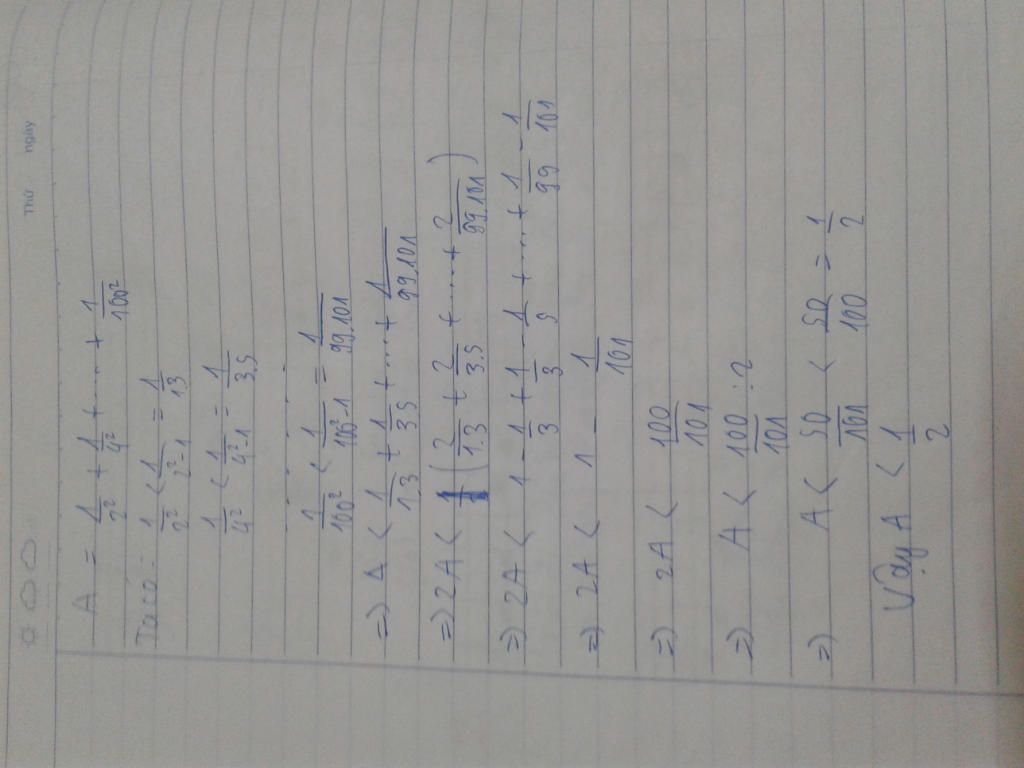 Thứ ngày
A = 1/2² + 1/4² + ..... + 1/100²
Ta có: 1/2² < 1/2²-1 = 1/1.3
1/4² < 1/4²-1 = 1/3.5
1/100² < 1/100²-1 = 1/99.101
=) A < 1/1.3 + 1/3.5 + ..... + 1/99.101
=) 2A < (2/1.3 + 2/3.5 + ..... + 2/99.101)
=) 2A < 1 - 1/3 + 1/3 - 1/5 + ..... + 1/99 - 1/101
=) 2A < 1 - 1/101
=) 2A < 100/101
=) A < 100/101 : 2
=) A < 50/101 < 50/100 = 1/2
Vậy A < 1/2